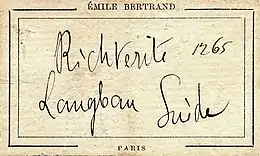 ÉMILE BERTRAND
Richterite 1265
Langban Suède
PARIS